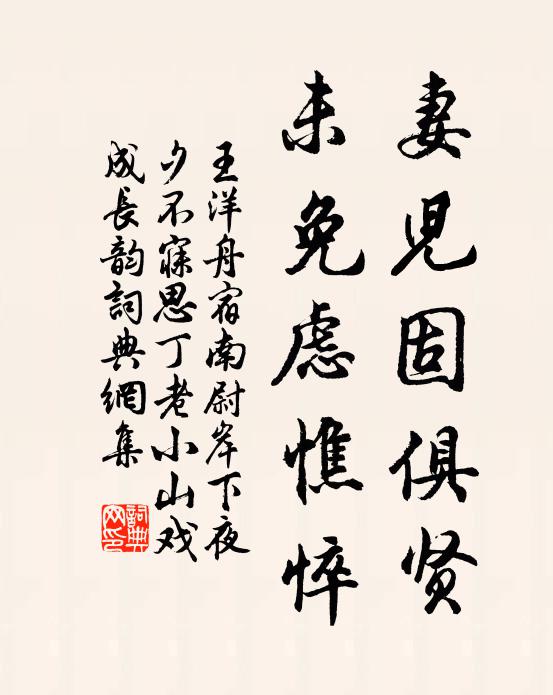 妻児固俱贤
未免虑憔悴
王洋舟宿南尉岸下夜
夕不寐思丁老小山戏
成长韵詞典網集
詞典网印